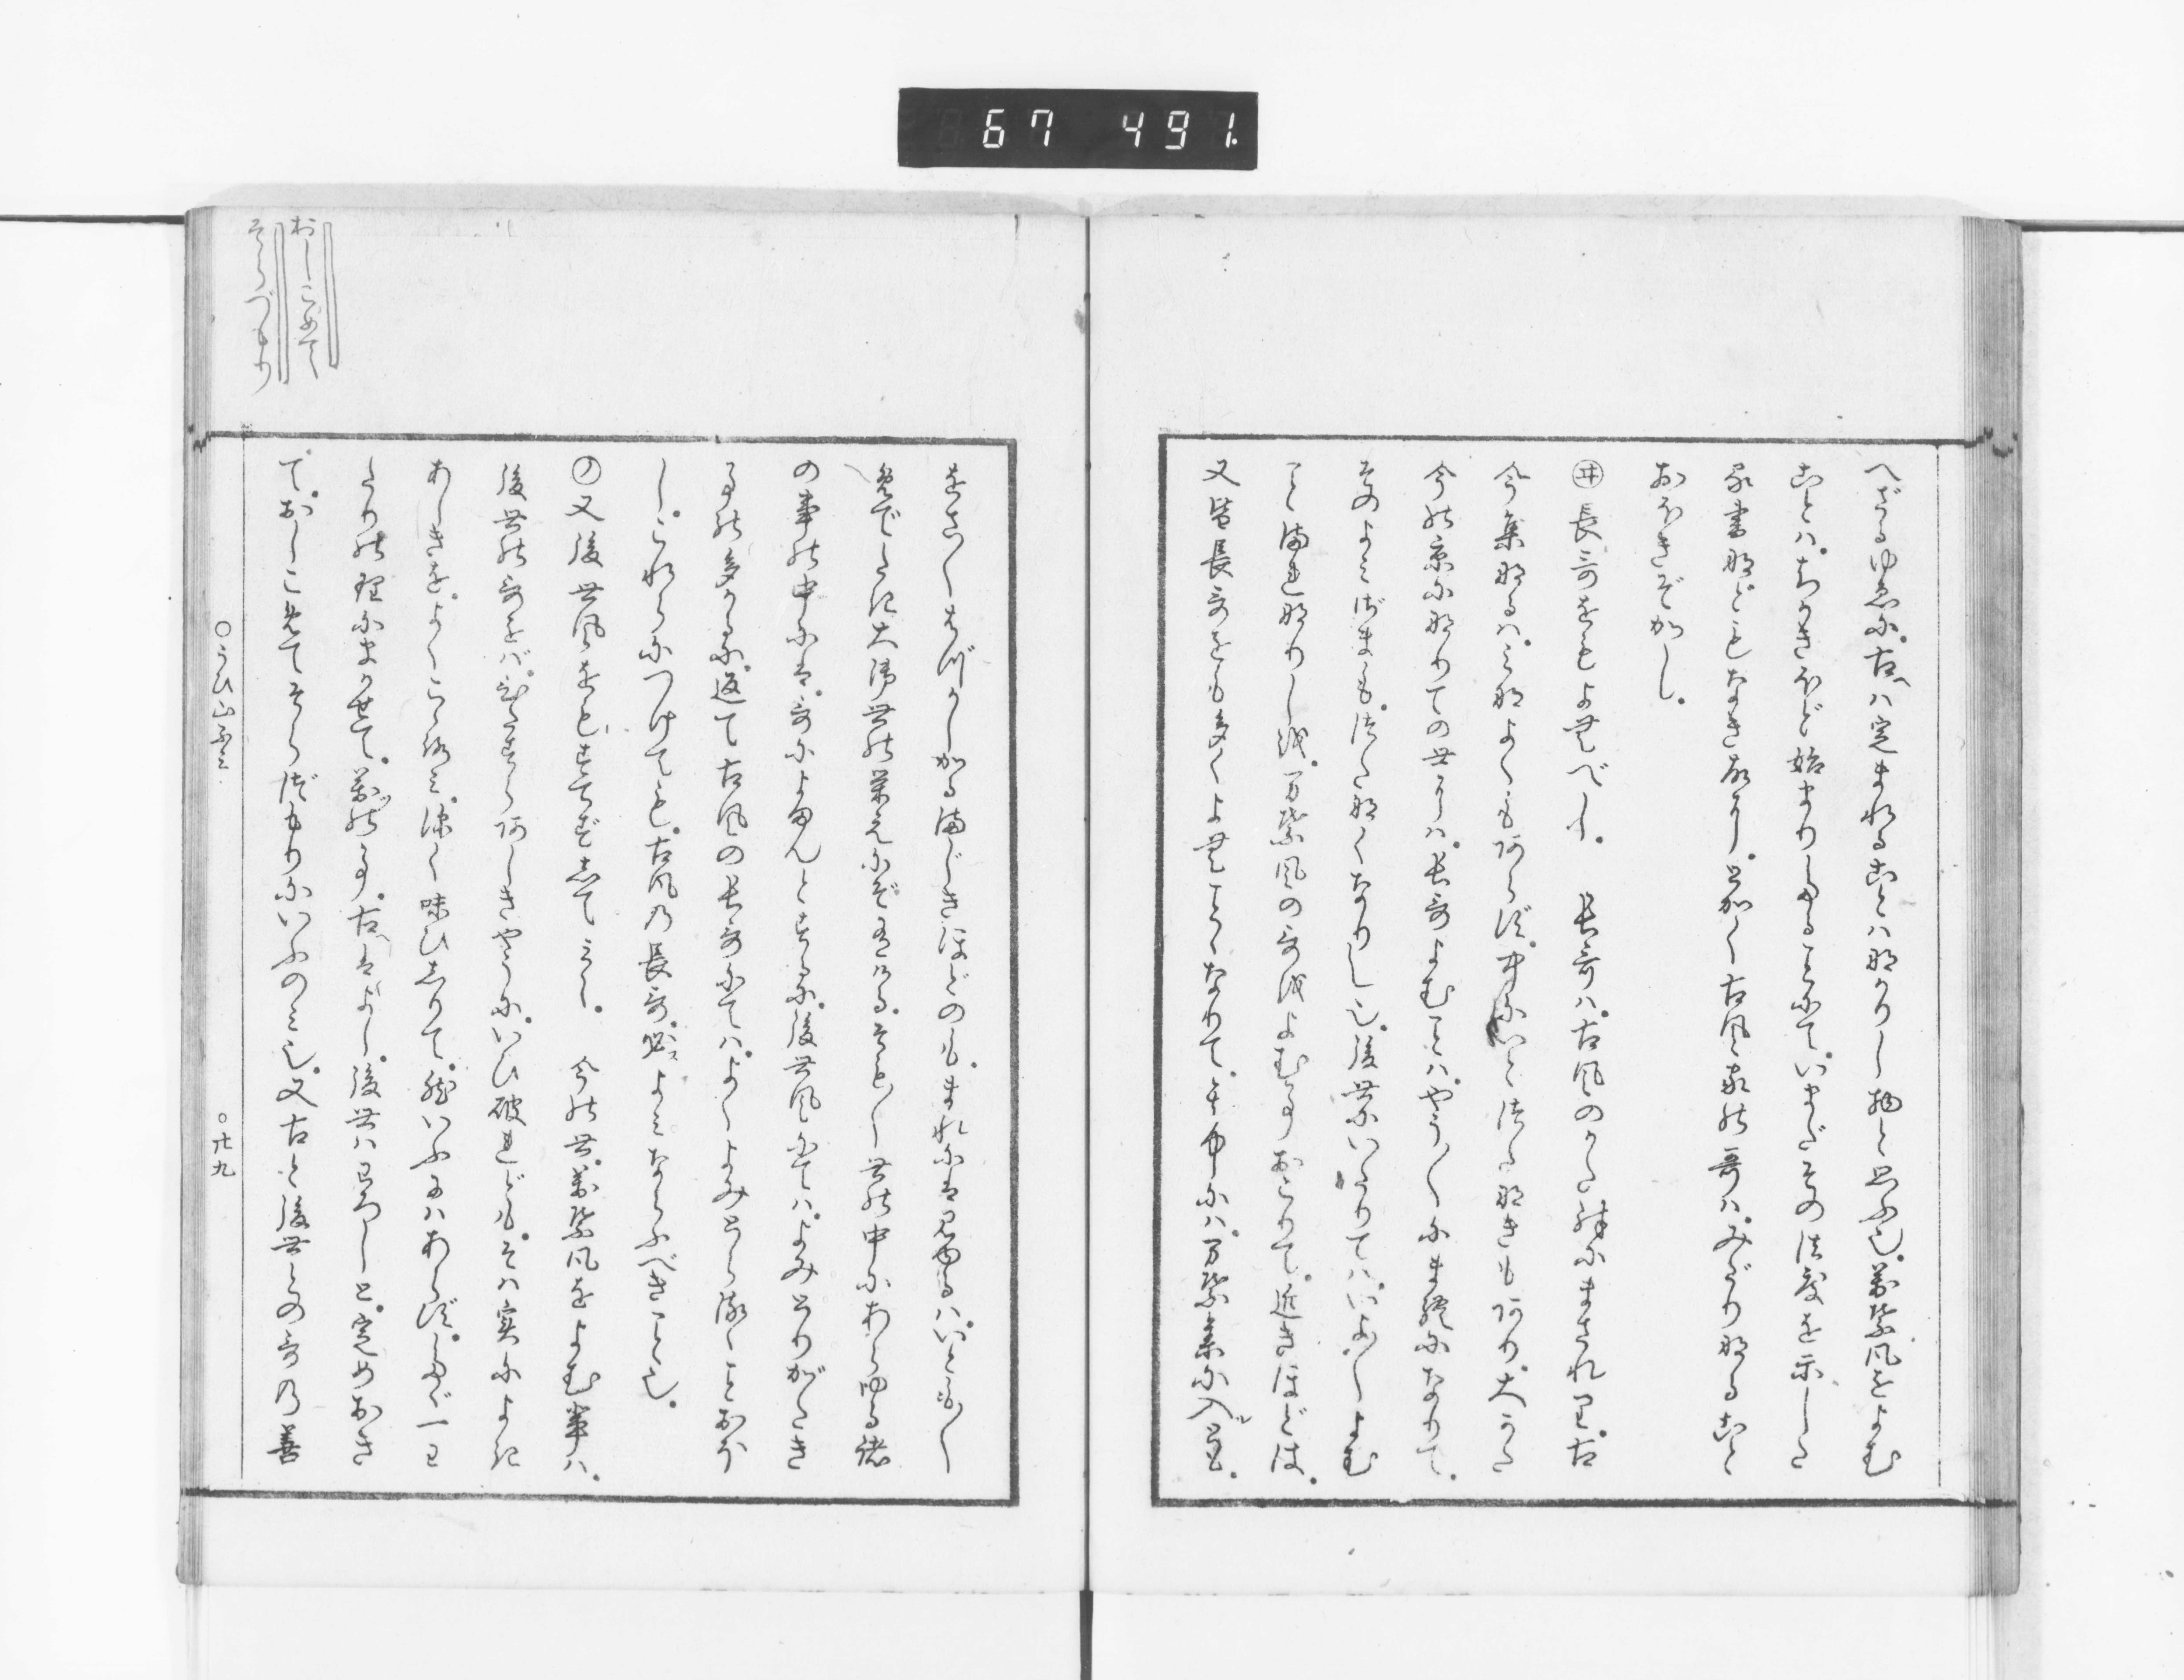 へざるゆゑに。古へハ定まれることハなかりし物と思ふ也。萬葉風をよむ
ことハ。ちかきほど始まりたることにて。いまだその法度を示した
る書などもなき故に。とかく古風家の哥ハ。みだりなること
おほきぞかし。
㋼長哥をもよむべし。　長哥ハ。古風のかた殊にまされり。古
今集なるハ。みなよくもあらず。中にいとつたなきもあり。大かた
今の京になりての世にハ。長哥よむことハ。やう〳〵にまれになりて。
そのよみざまも。つたなくなりし也。後世にいたりてハ。いよ〳〵よむ
ことまれなりしを。万葉風の哥をよむ事おこりて。近きほどは。
又皆長哥をも多くよむことゝなりて。其中にハ。万葉集に入ルとも。
をさ〳〵はづかしかるまじきほどのも。まれには見ゆるハ。いとも〳〵
めでたき大御世の榮えにぞ有ける。そも〳〵世の中にあらゆる諸
の事の中には。哥によまんとするに。後世風にてハ。よみとりがたき
事の多かるに。返て古風の長哥にてハ。よくよみとらるゝことおほ
し。これらにつけても。古風の長哥。必ズよみならふべきこと也。
㋨又後世風をもすてずしてしか〳〵。　今の世。萬葉風をよむ輩ハ。
後世の哥をバ。ひたすらあしきやうに。いひ破れども。そハ実によき
あしきを。よくこゝろみ。深く味ひしりて。然いふにハあらず。たゞ一わ
たりの理にまかせて。萬の事。古へはよし。後世ハわろしと。定めおき
て。おしこめてそらづもりにいふのみ也。又古と後世との哥の善
○うひ山ふみ　○廿九
おしこめて
そらづもり
67 491